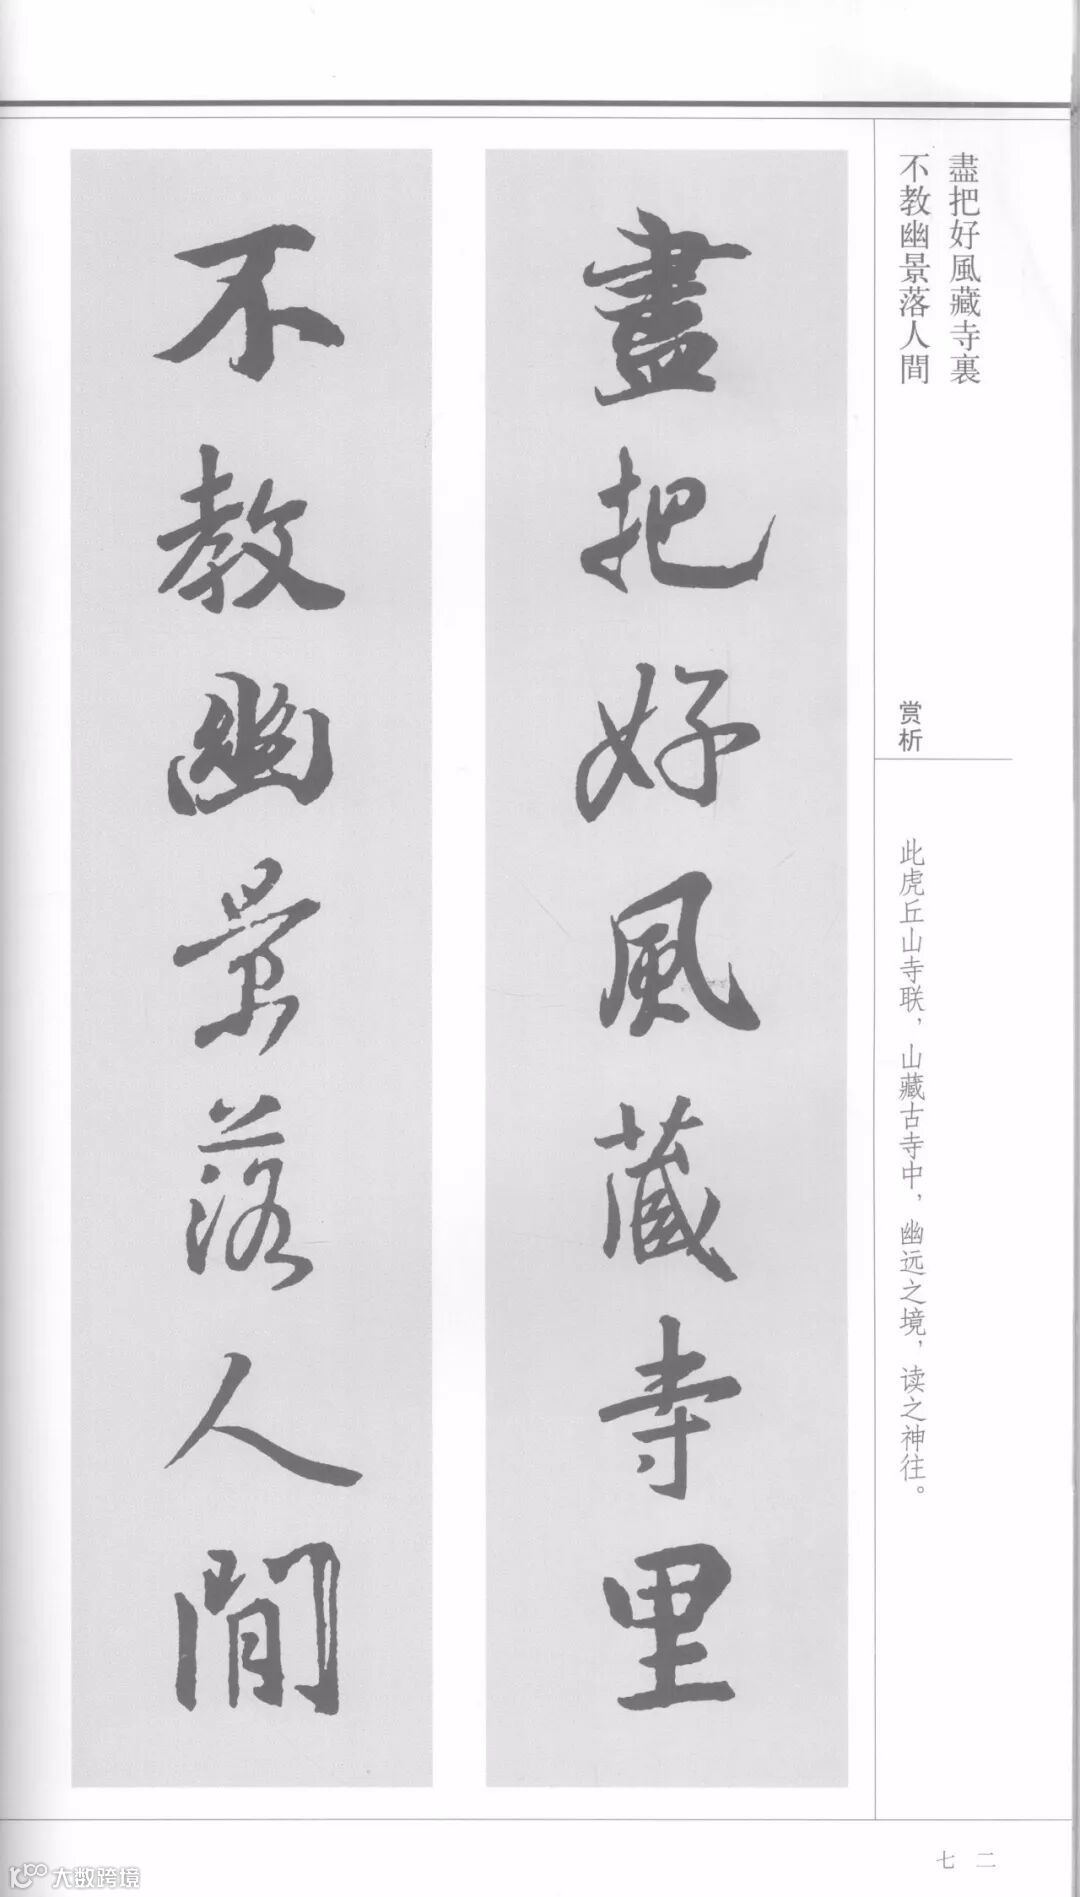 盡把好風藏寺裏
不教幽景落人間
赏析
此虎丘山寺联，山藏古寺中，幽远之境，读之神往。
盡把好風藏寺里
不教幽景落人間
七二
大数跨境